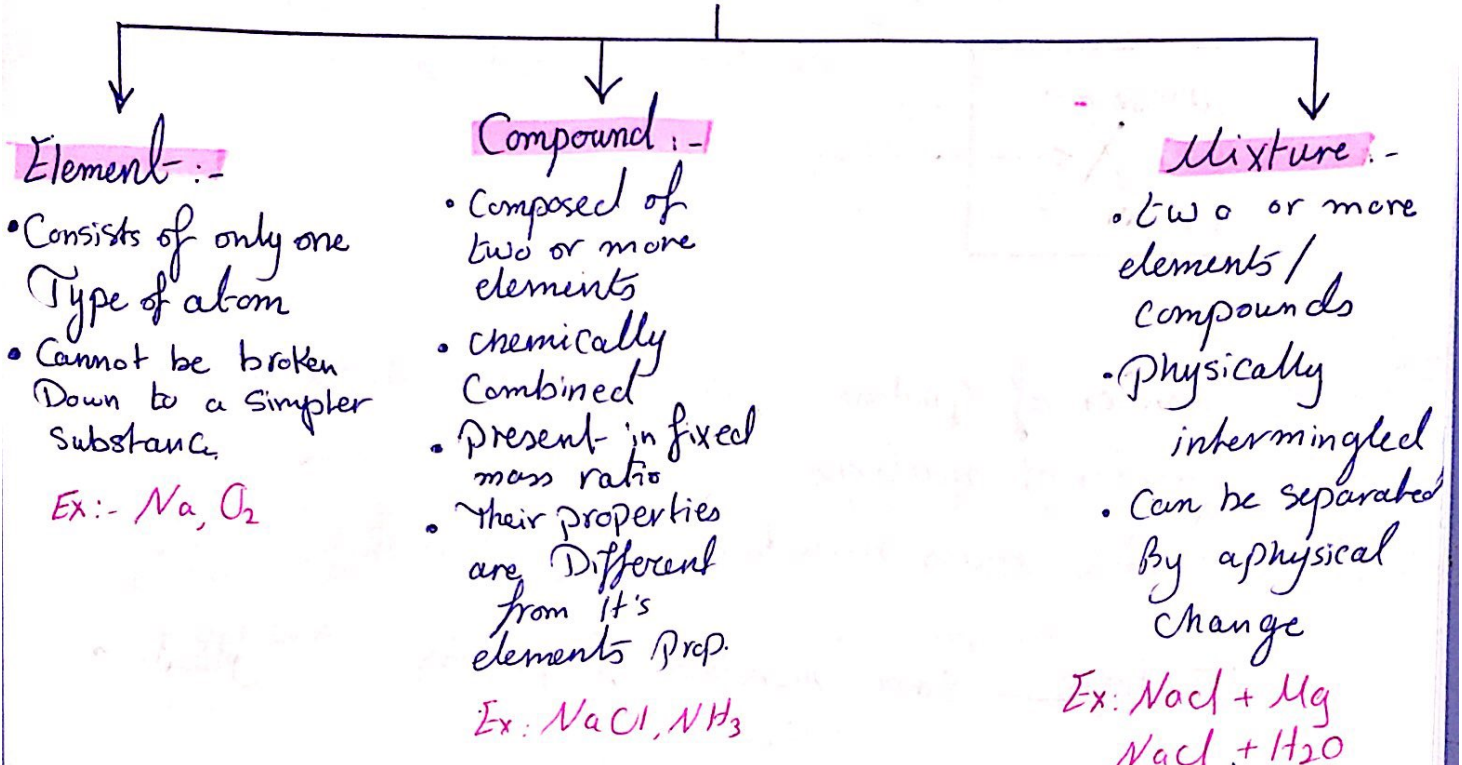 Element :-
• Consists of only one
Type of atom
• Cannot be broken
Down to a Simpler
Substance.
Ex:- Na, O₂
Compound :-
• Composed of
two or more
elements
• chemically
Combined
• Present in fixed
mass ratio
• Their properties
are Different
from it's
elements Prop.
Ex: NaCl, NH₃
Mixture :-
• two or more
elements/
compounds
• Physically
intermingled
• Can be separated
By a physical
change
Ex: Nacl + Mg
Nacl + H₂O